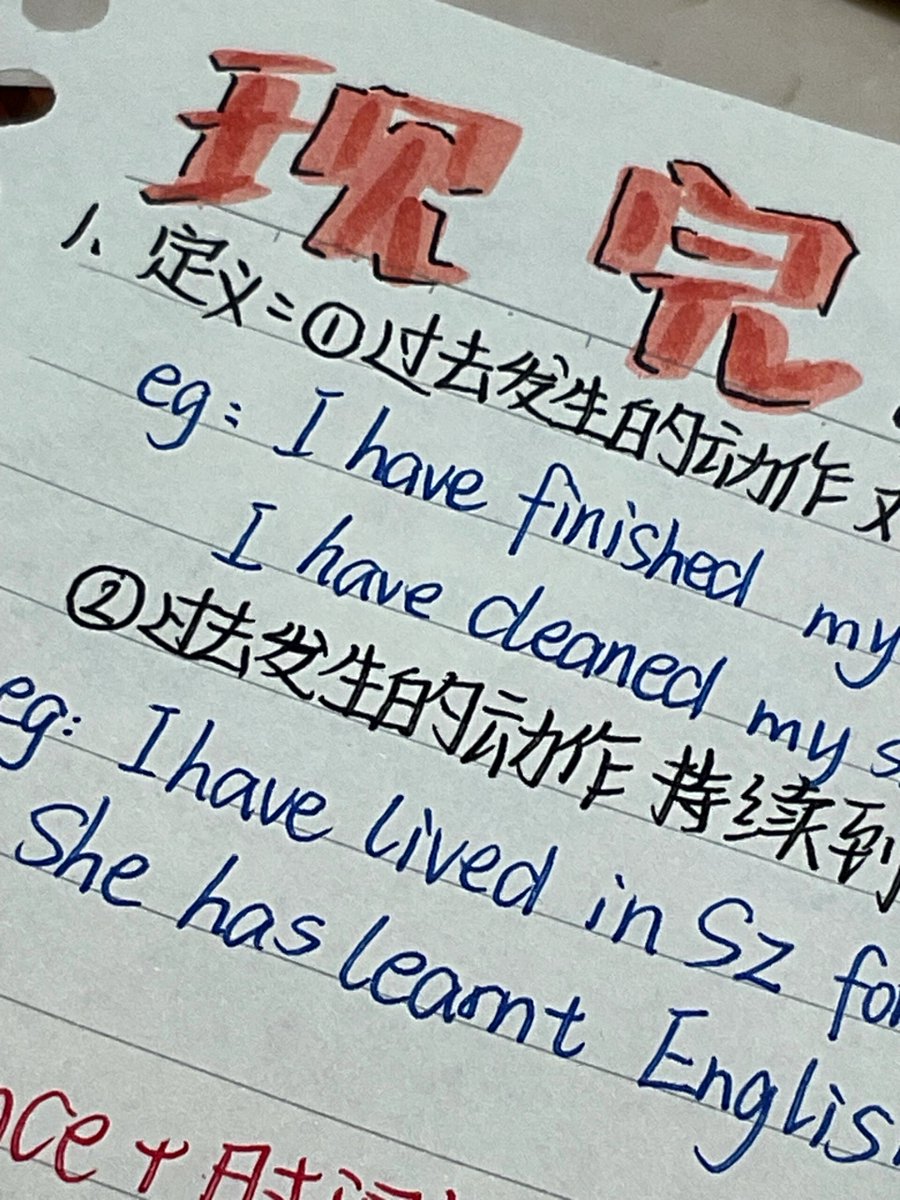 现完
1、定义：①过去发生的动作 对
eg: I have finished my
I have cleaned my s
②过去发生的动作 持续到
eg: I have lived in Sz for
She has learnt Englis
nce + 时间